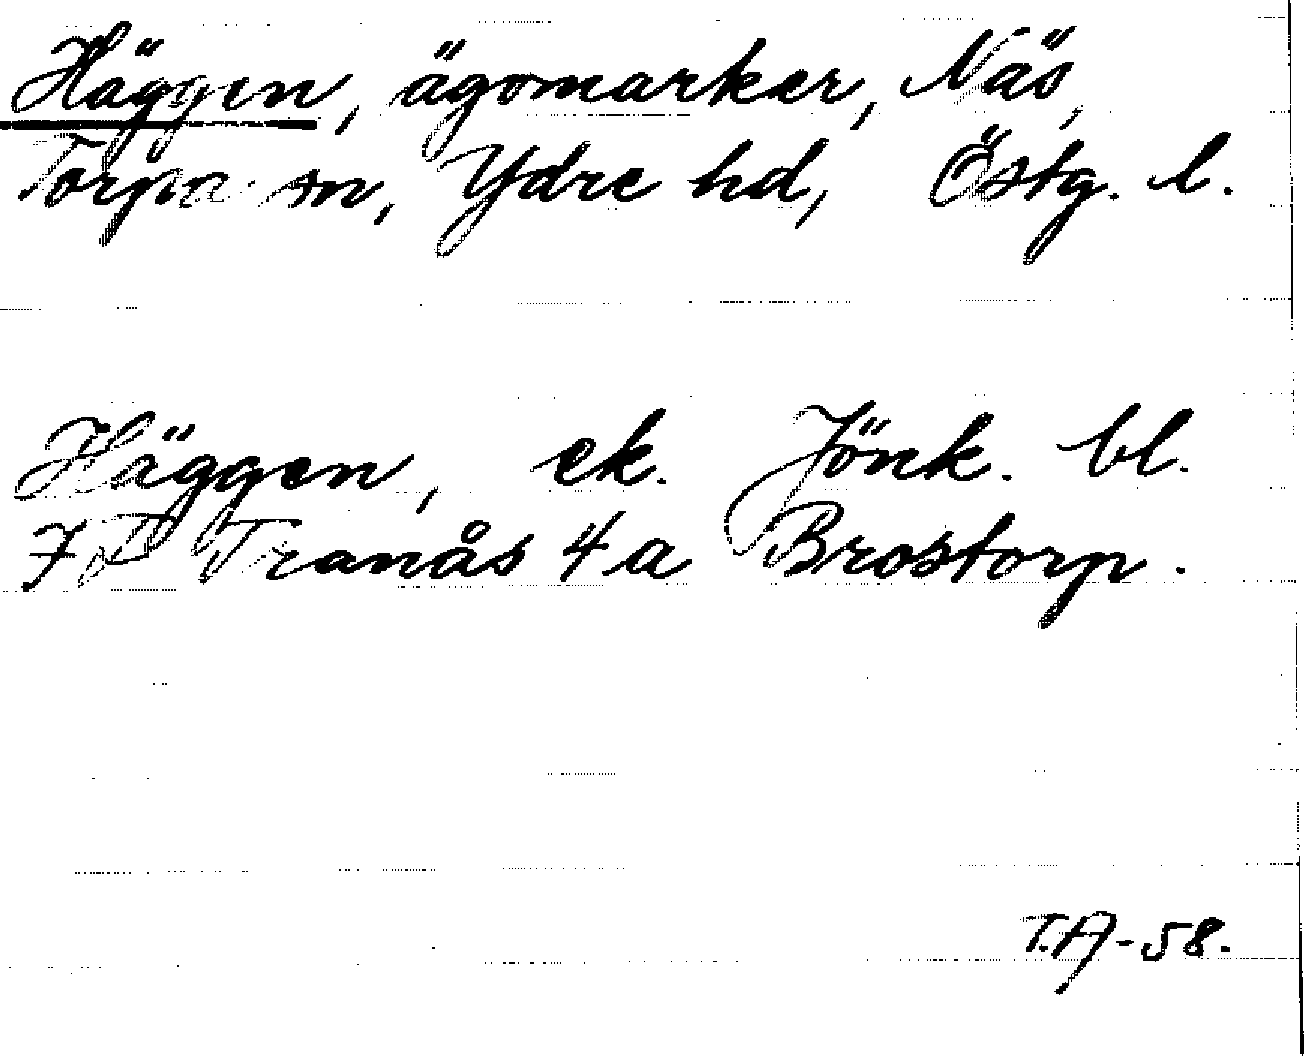 Häggen, ägomarker, Näs,
Torpa sn, Ydre hd, Östg. l.
Häggen, ek. Jönk. bl.
7F Tranås 4a Brostorp.
T.A-58.